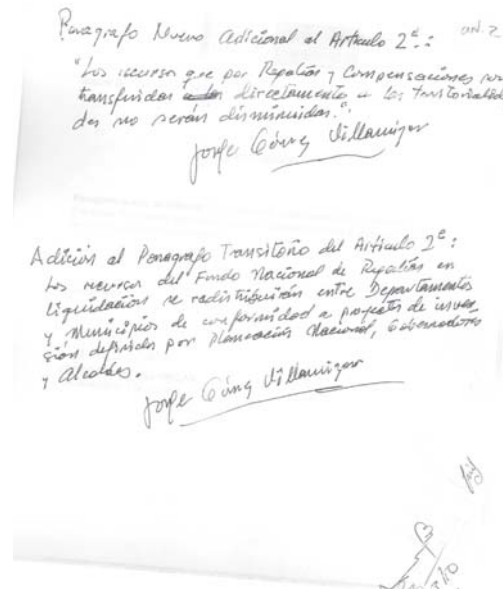 Paragrafo Nuevo Adicional al Articulo 2º:
"Los recursos que por Regalías y Compensaciones son
transferidos directamente a las Territorialida
des no serán disminuidos."
Jorge Gómez Villamizar
Adición al Paragrafo Transitorio del Artículo 2º:
Los recursos del Fondo Nacional de Regalías en
liquidación se redistribuirán entre Departamentos
y Municipios de conformidad a proyectos de inver
sión definidos por Planeación Nacional, Gobernadores
y Alcaldes.
Jorge Gómez Villamizar